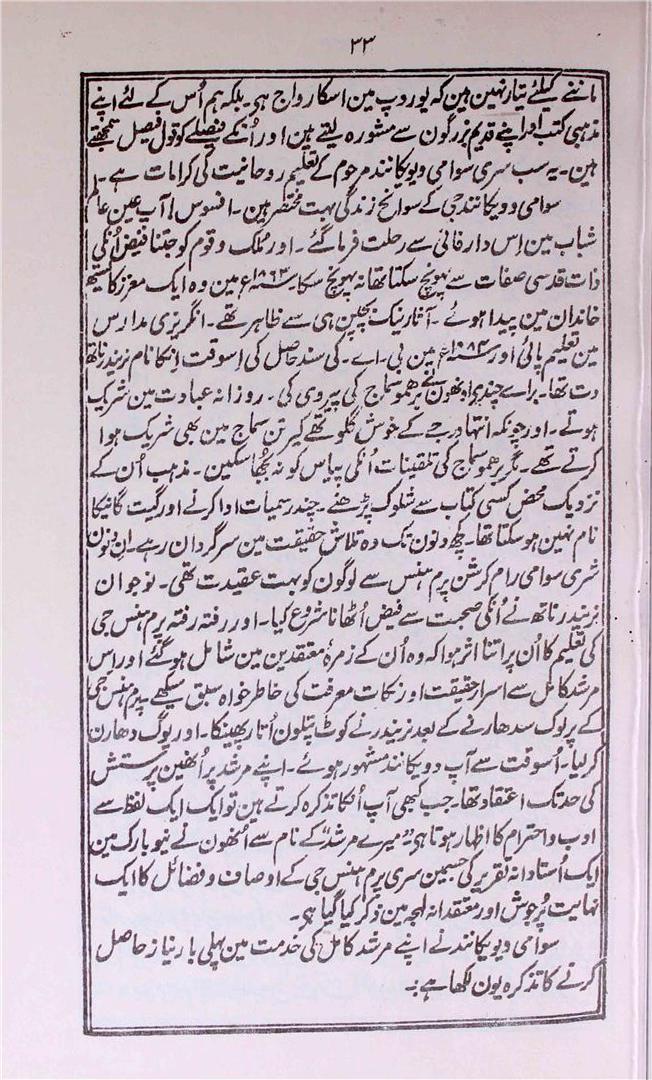 ۳۳
ماننے کیلئے تیار نہین ہین کہ یوروپ مین اسکا رواج ہی۔ بلکہ ہم اُس کے لئے اپنے
مذہبی کتب اور اپنے قدیم بزرگون سے مشورہ لیتے ہین اور اُنکے فیصلے کو قول فیصل سمجھتے
ہین۔ یہ سب سری سوامی ویویکانند مرحوم کے تعلیم روحانیت کی کرامات ہے۔
سوامی وویکانندجی کے سوانح زندگی بہت مختصر ہین۔ افسوس! آپ عین عالم
شباب مین اِس دار فانی سے رحلت فرما گئے۔ اور مُلک و قوم کو جتنا فیض اُنکی
ذات قدسی صفات سے پہونچ سکتا تھا نہ پہونچ سکا۔ ۱۸۶۳ء مین وہ ایک معزز کایستھ
خاندان مین پیدا ہوئے۔ آثار نیک بچپن ہی سے ظاہر تھے۔ انگریزی مدارس
مین تعلیم پائی اور ۱۸۸۴ء مین بی۔ اے۔ کی سند حاصل کی اِسوقت اِنکا نام نریندر ناتھ
دت تھا۔ براے چندے اُنھون نے برھمو سماج کی پیروی کی۔ روزانہ عبادت مین شریک
ہوتے۔ اور چونکہ انتہا درجے کے خوش گلو تھے کیرتن سماج مین بھی شریک ہوا
کرتے تھے۔ مگر برھمو سماج کی تلقینات اُنکی پیاس کو نہ بجھا سکین۔ مذہب اُن کے
نزدیک محض کسی کتاب سے شلوک پڑھنے۔ چند رسمیات ادا کرنے اور گیت گانیکا
نام نہین ہو سکتا تھا۔ کچھ دنون تک وہ تلاش حقیقت مین سرگردان رہے۔ اِن دنون
شری سوامی رام کرشن پرم ہنس سے لوگون کو بہت عقیدت تھی۔ نوجوان
نریندر ناتھ نے اُنکی صحبت سے فیض اُٹھانا شروع کیا۔ اور رفتہ رفتہ پرم ہنس جی
کی تعلیم کا اُن پر اتنا اثر ہوا کہ وہ اُن کے زمرۂ معتقدین مین شامل ہو گئے اور اس
مرشد کامل سے اسرار حقیقت اور نکات معرفت کی خاطر خواہ سبق سیکھے۔ پرم ہنس جی
کے پرلوک سدھارنے کے بعد نریندر نے کوٹ پتلون اُتار پھینکا۔ اور یوگ دھارن
کرلیا۔ اُسوقت سے آپ وویکانند مشہور ہوئے۔ اپنے مرشد پر اُنھین پرستش
کی حد تک اعتقاد تھا۔ جب کبھی آپ اُنکا تذکرہ کرتے ہین تو ایک ایک لفظ سے
ادب و احترام کا اظہار ہوتا ہی "میرے مرشد" کے نام سے اُنھون نے نیویارک مین
ایک اُستادانہ تقریر کی جسمین سری پرم ہنس جی کے اوصاف و فضائل کا ایک
نہایت پُرجوش اور معتقدانہ لہجہ مین ذکر کیا گیا ہی۔
سوامی ویویکانند نے اپنے مرشد کامل کی خدمت مین پہلی بار نیاز حاصل
کرنے کا تذکرہ یون لکھا ہے:۔